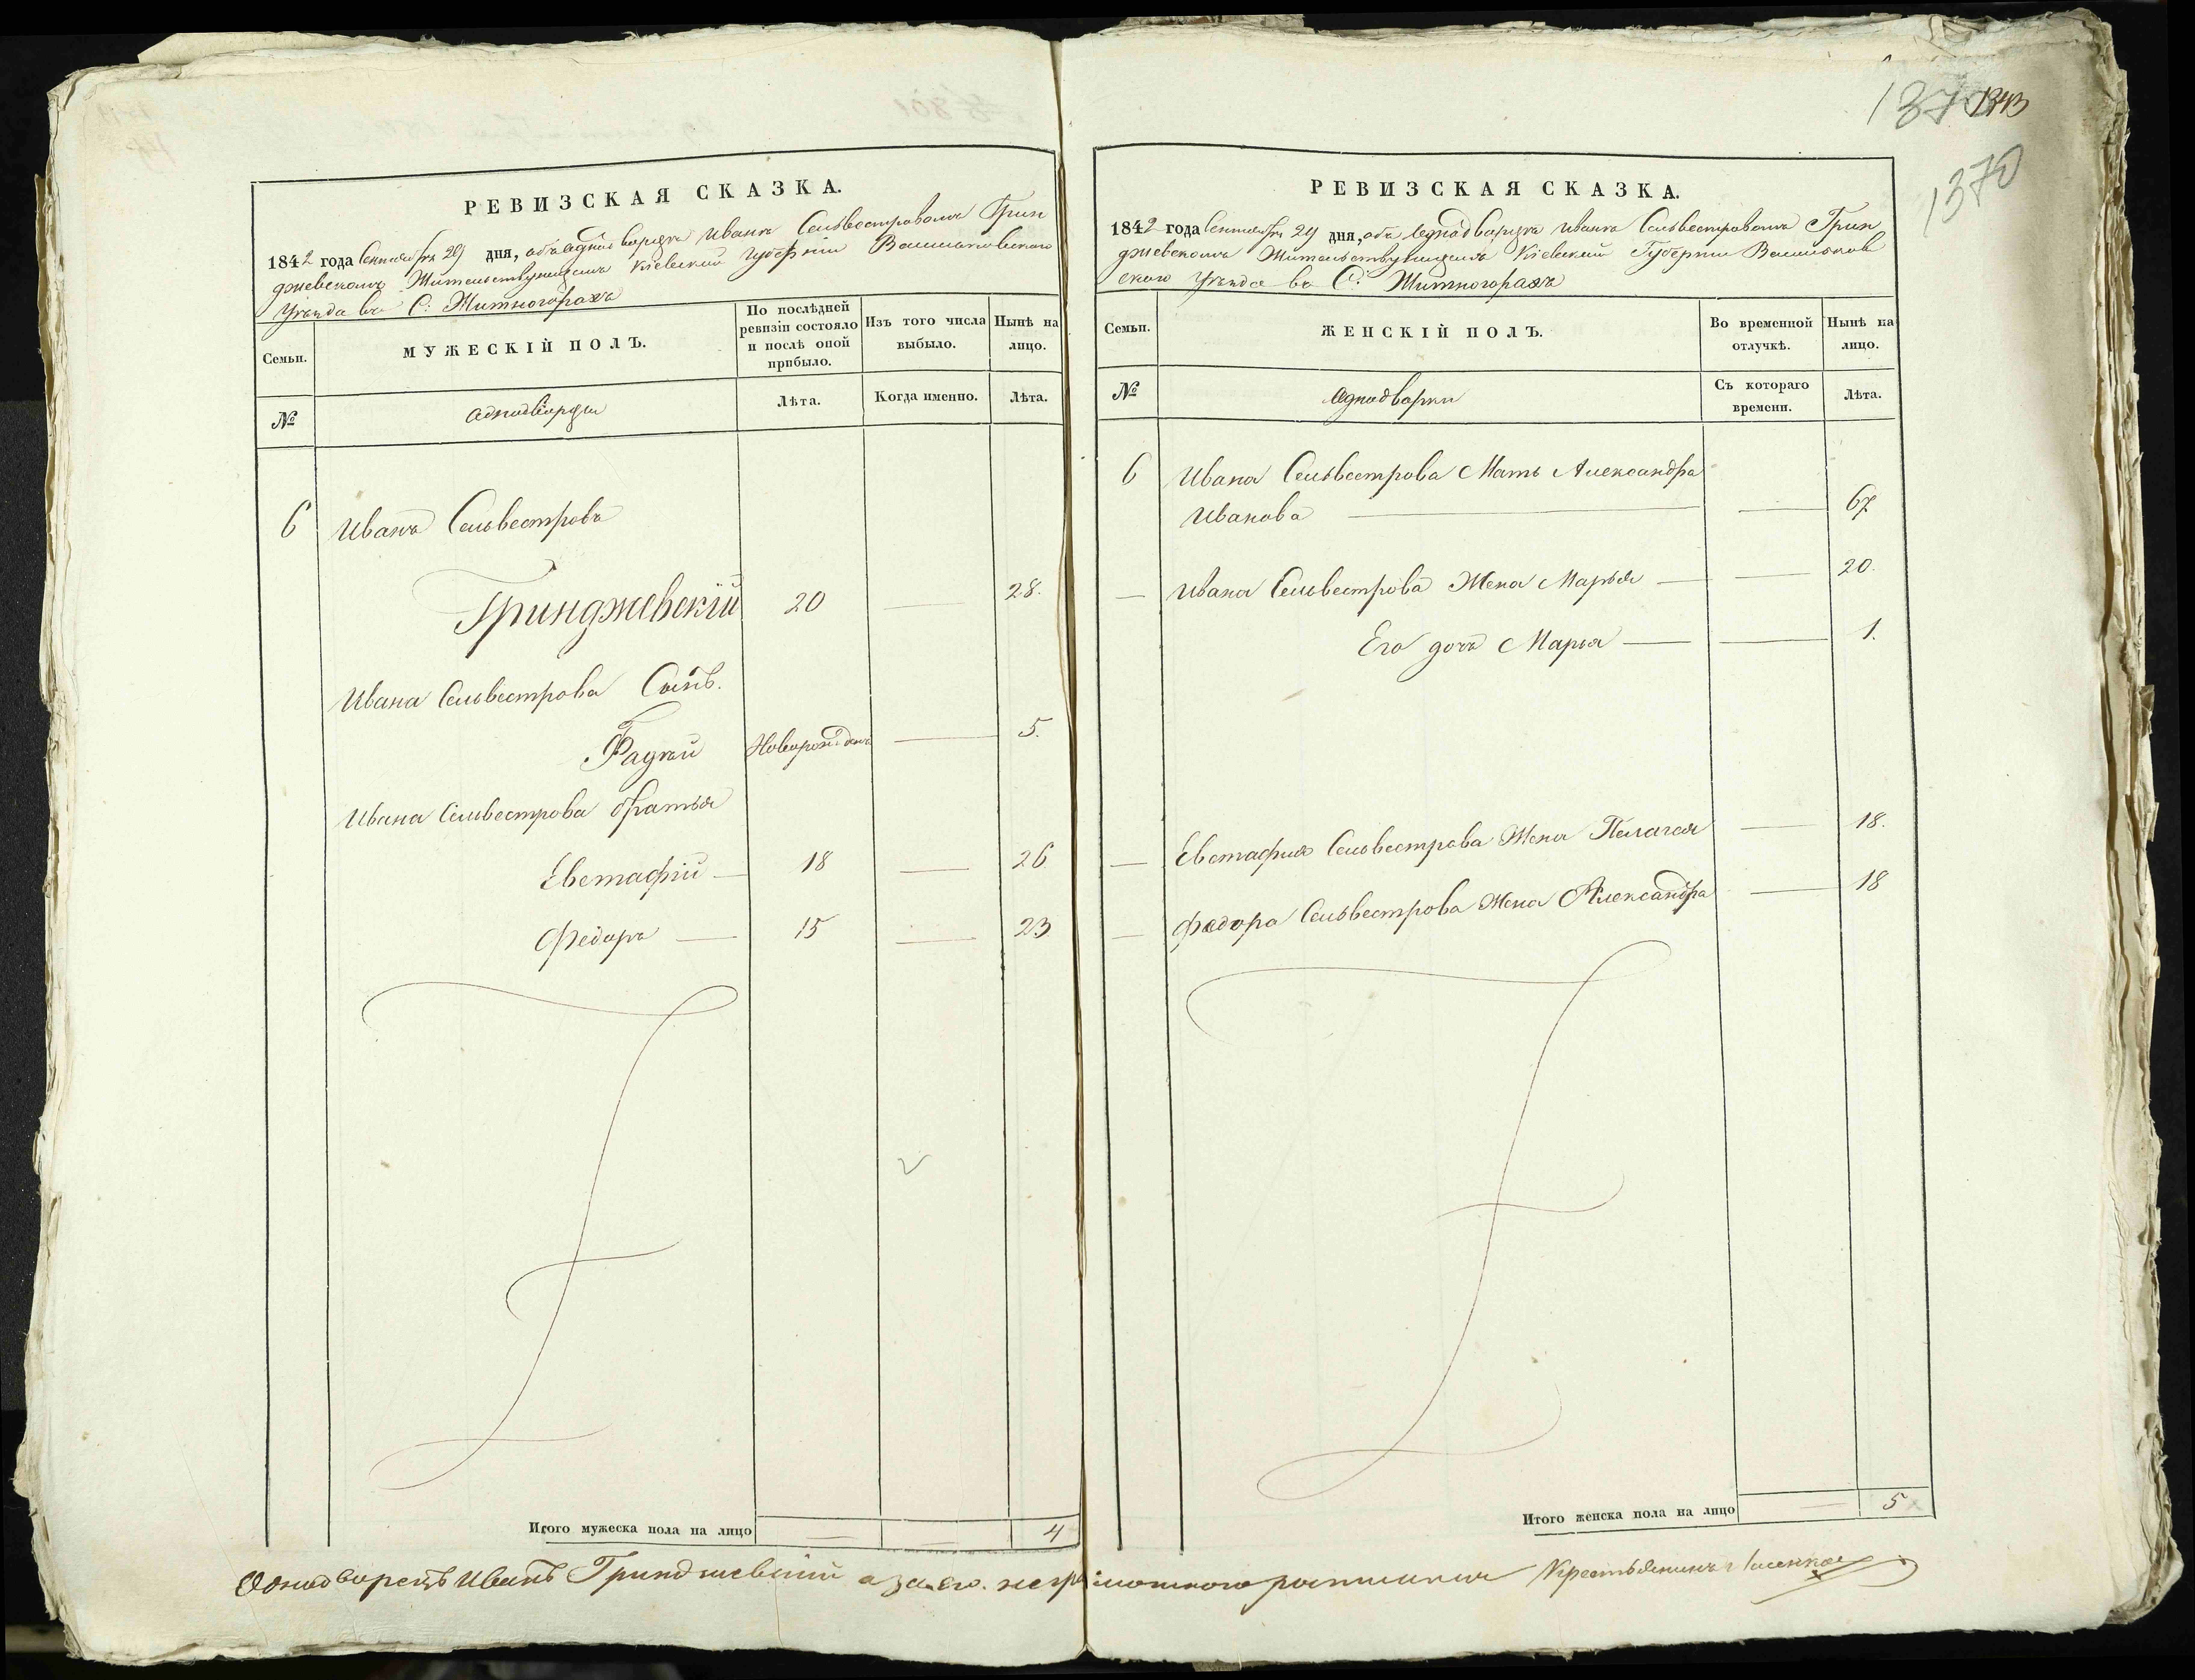 1343
1370
1370
РЕВИЗСКАЯ СКАЗКА.
1842 года Сентября 29 дня, объ однодворцѣ Иванѣ Сельвестровомъ Грин
джевскомъ Жительствующемъ Кіевской Губерніи Васильковского
Уѣзда въ С: Житногорахъ
Семьи.
МУЖЕСКІЙ ПОЛЪ.
По послѣдней ревизіи состояло и послѣ оной прибыло.
Изъ того числа выбыло.
Нынѣ на лицо.
№
однодворцы
Лѣта.
Когда именно.
Лѣта.
6 Иванъ Сельвестровъ
Гринджевскій 20 — 28.
Ивана Сельвестрова Сынъ.
Фадѣй Новорожденъ — 5.
Ивана Сельвестрова братья
Евстафій — 18 — 26.
Федоръ — 15 — 23
Итого мужеска пола на лицо — — 4
РЕВИЗСКАЯ СКАЗКА.
1842 года Сентября 29 дня, объ однодворцѣ Иванѣ Сельвестровомъ Грин
джевскомъ Жительствующемъ Кіевской Губерніи Васильков
ского Уѣзда въ С: Житногорахъ
Семьи.
ЖЕНСКІЙ ПОЛЪ.
Во временной отлучкѣ.
Нынѣ на лицо.
№
однодворки
Съ котораго времени.
Лѣта.
6 Ивана Сельвестрова Мать Александра
Иванова — — 67
— Ивана Сельвестрова Жена Марья — — 20.
Его дочь Марья — — 1.
— Евстафия Сельвестрова Жена Пелагея — 18.
— Федора Сельвестрова Жена Александра — 18
Итого женска пола на лицо — 5
Однодворецъ Иванъ Гринджевскій а за его неграмотного росписился Крестьянинъ